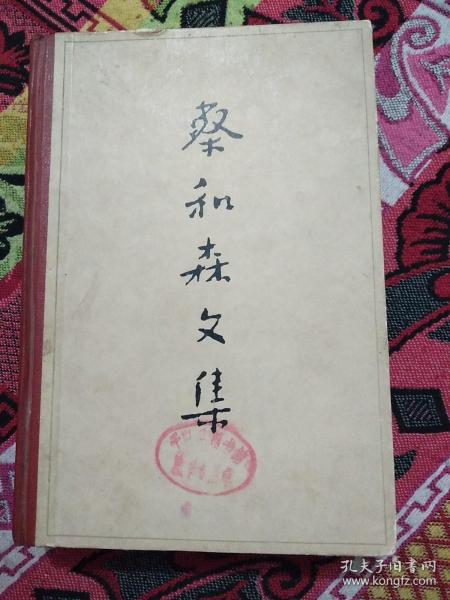 蔡和森文集
孔夫子旧书网
www.kongfz.com